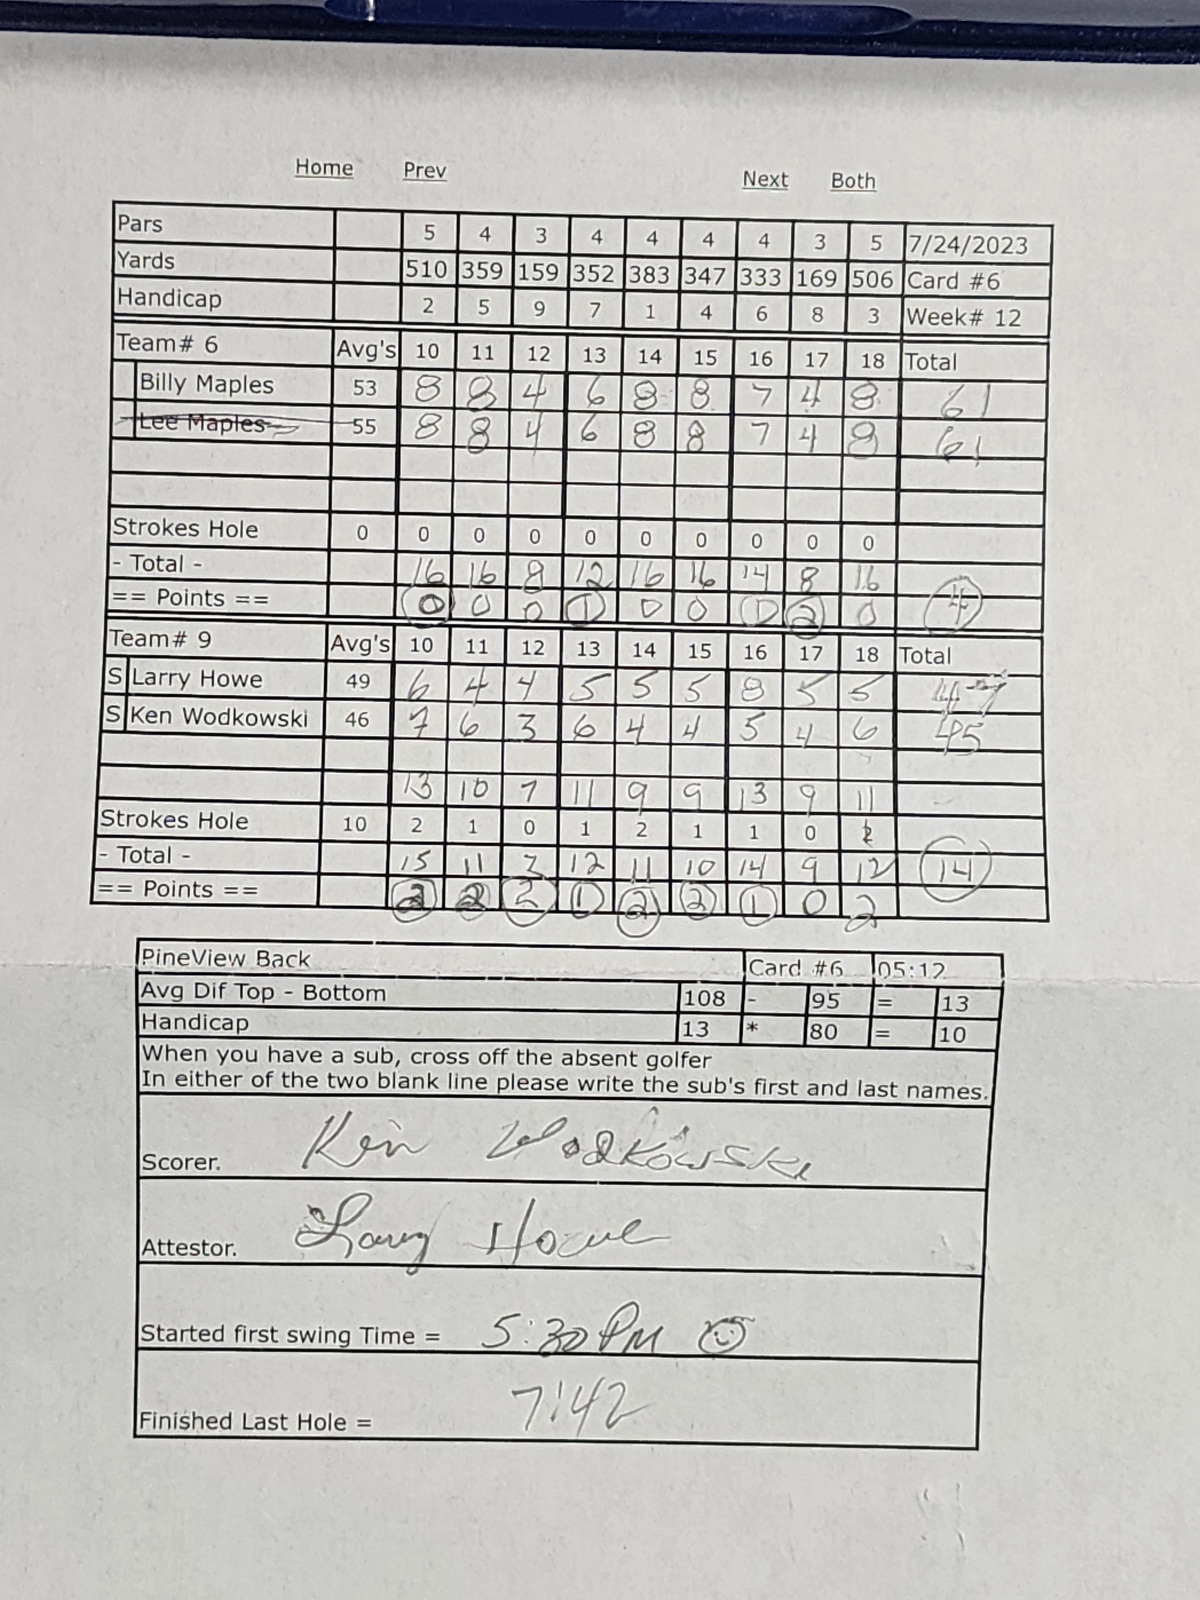 Home Prev Next Both
Pars 5 4 3 4 4 4 4 3 5 7/24/2023
Yards 510 359 159 352 383 347 333 169 506 Card #6
Handicap 2 5 9 7 1 4 6 8 3 Week# 12
Team# 6 Avg's 10 11 12 13 14 15 16 17 18 Total
Billy Maples 53 8 8 4 6 8 8 7 4 8 61
Lee Maples 55 8 8 4 6 8 8 7 4 8 61
Strokes Hole 0 0 0 0 0 0 0 0 0 0
- Total - 16 16 8 12 16 16 14 8 16
== Points == 0 0 0 1 0 0 1 2 0 4
Team# 9 Avg's 10 11 12 13 14 15 16 17 18 Total
S Larry Howe 49 6 4 4 5 5 5 8 5 5 47
S Ken Wodkowski 46 7 6 3 6 4 4 5 4 6 45
13 10 7 11 9 9 13 9 11
Strokes Hole 10 2 1 0 1 2 1 1 0
- Total - 15 11 7 12 11 10 14 9 12 14
== Points == 2 2 2 1 2 2 1 0 2
PineView Back Card #6 05:12
Avg Dif Top - Bottom 108 - 95 = 13
Handicap 13 * 80 = 10
When you have a sub, cross off the absent golfer
In either of the two blank line please write the sub's first and last names.
Scorer. Ken Wodkowski
Attestor. Larry Howe
Started first swing Time = 5:30 PM
Finished Last Hole = 7:42